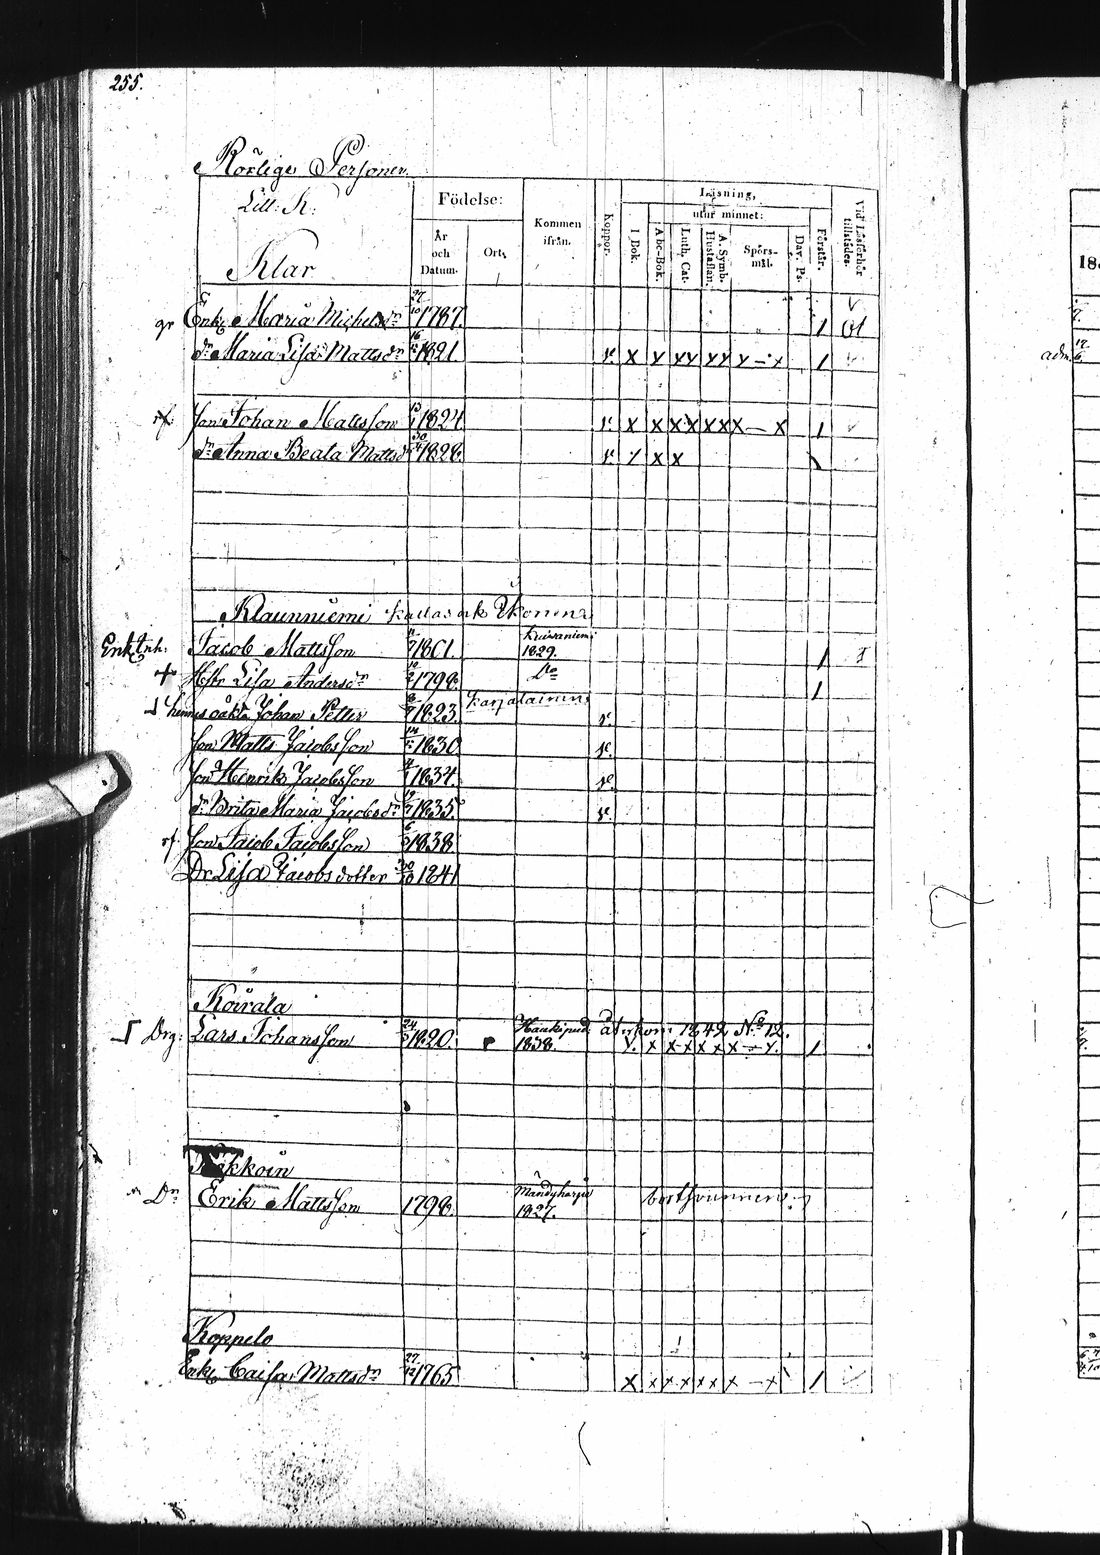 255.
Rörlige Personer.
Litt: K:
Klar
Födelse:
År och Datum.
Ort.
Kommen ifrån.
Koppor.
Läsning,
utur minnet:
I Bok.
Abc-Bok.
Luth. Cat.
A. Symb. Hustaflan.
Spörs-mål.
Dav. Ps.
Förstår.
Vid Läsförhör tillstädes.
Enk. Maria Michelsdr 27/10 1787. 1
dr Maria Lisa Mattsdr 1821 v. x y xx yy y - x 1
Son Johan Mattsson 1824 v. x x xx xx x - x 1
dr Anna Beata Mattsdr 1828. v. / x x
Klaunniemi kallas ock Ikonen
Enkl. Inh. Jacob Mattsson 1801. 1829. 1
+ Hstr Lisa Andersdr 1798. Do 1
hennes oäkta Johan Petter 1823. Karjalainen v.
Son Matts Jacobsson 1830 v.
Son Hinrik Jacobsson 1834. v.
dr Brita Maria Jacobsdr 1835. v.
Son Jacob Jacobsson 1838
Dr Lisa Jacobsdotter 30/10 1841
Koirala
Drg: Lars Johansson 24 1820. Haukipud. 1838. återkom 1842 No 12.
x x x x x x - x. 1
Dn Erik Mattsson 1798. 1827. bortsvunnen
Koppelo
Enk. Caisa Mattsdr 27/12 1765 x x x x x x x - x 1
18
adm.